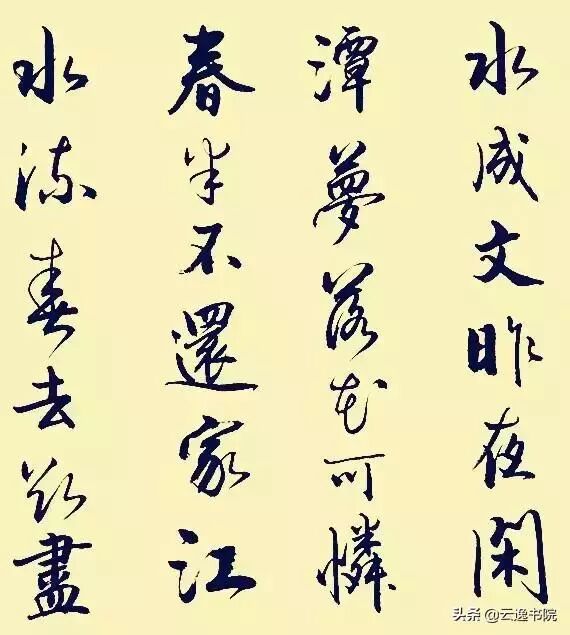 水成文昨夜闲
潭夢落花可憐
春半不還家江
水流春去欲盡
头条 @云逸书院